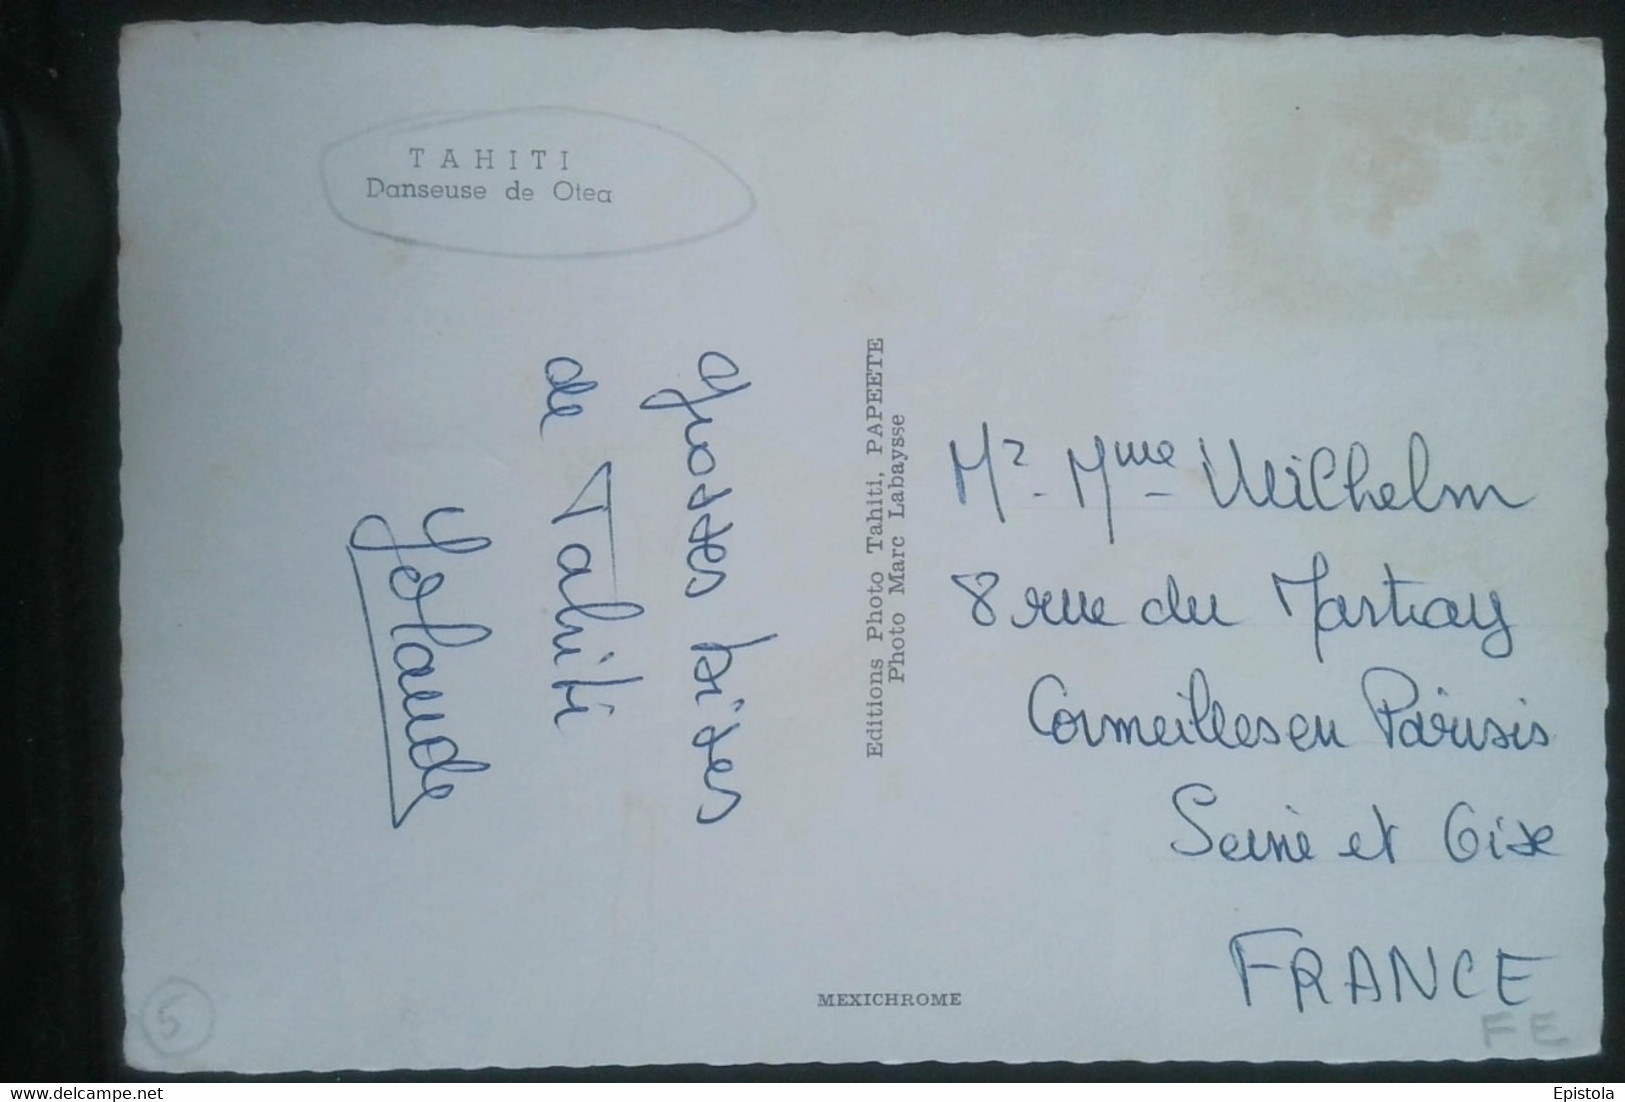 TAHITI
Danseuse de Otea
Grosses bises
de Tahiti
Yolande
Editions Photo Tahiti, PAPEETE
Photo Marc Labaysse
Mr - Mme Wilhelm
8 rue du Martray
Cormeilles en Parisis
Seine et Oise
FRANCE
FE
MEXICHROME
5
delcampe.net
Epistola